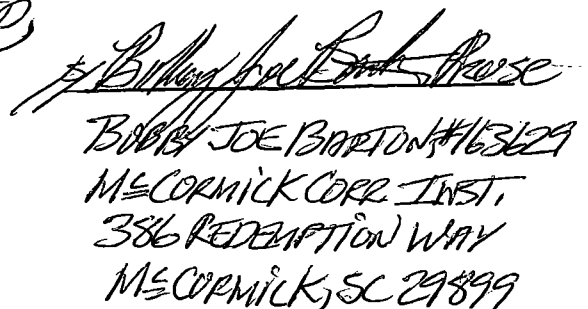 s/ Bobby Joe Barton, Prose
BOBBY JOE BARTON, #163629
McCORMICK CORR. INST.
386 REDEMPTION WAY
McCORMICK, SC 29899